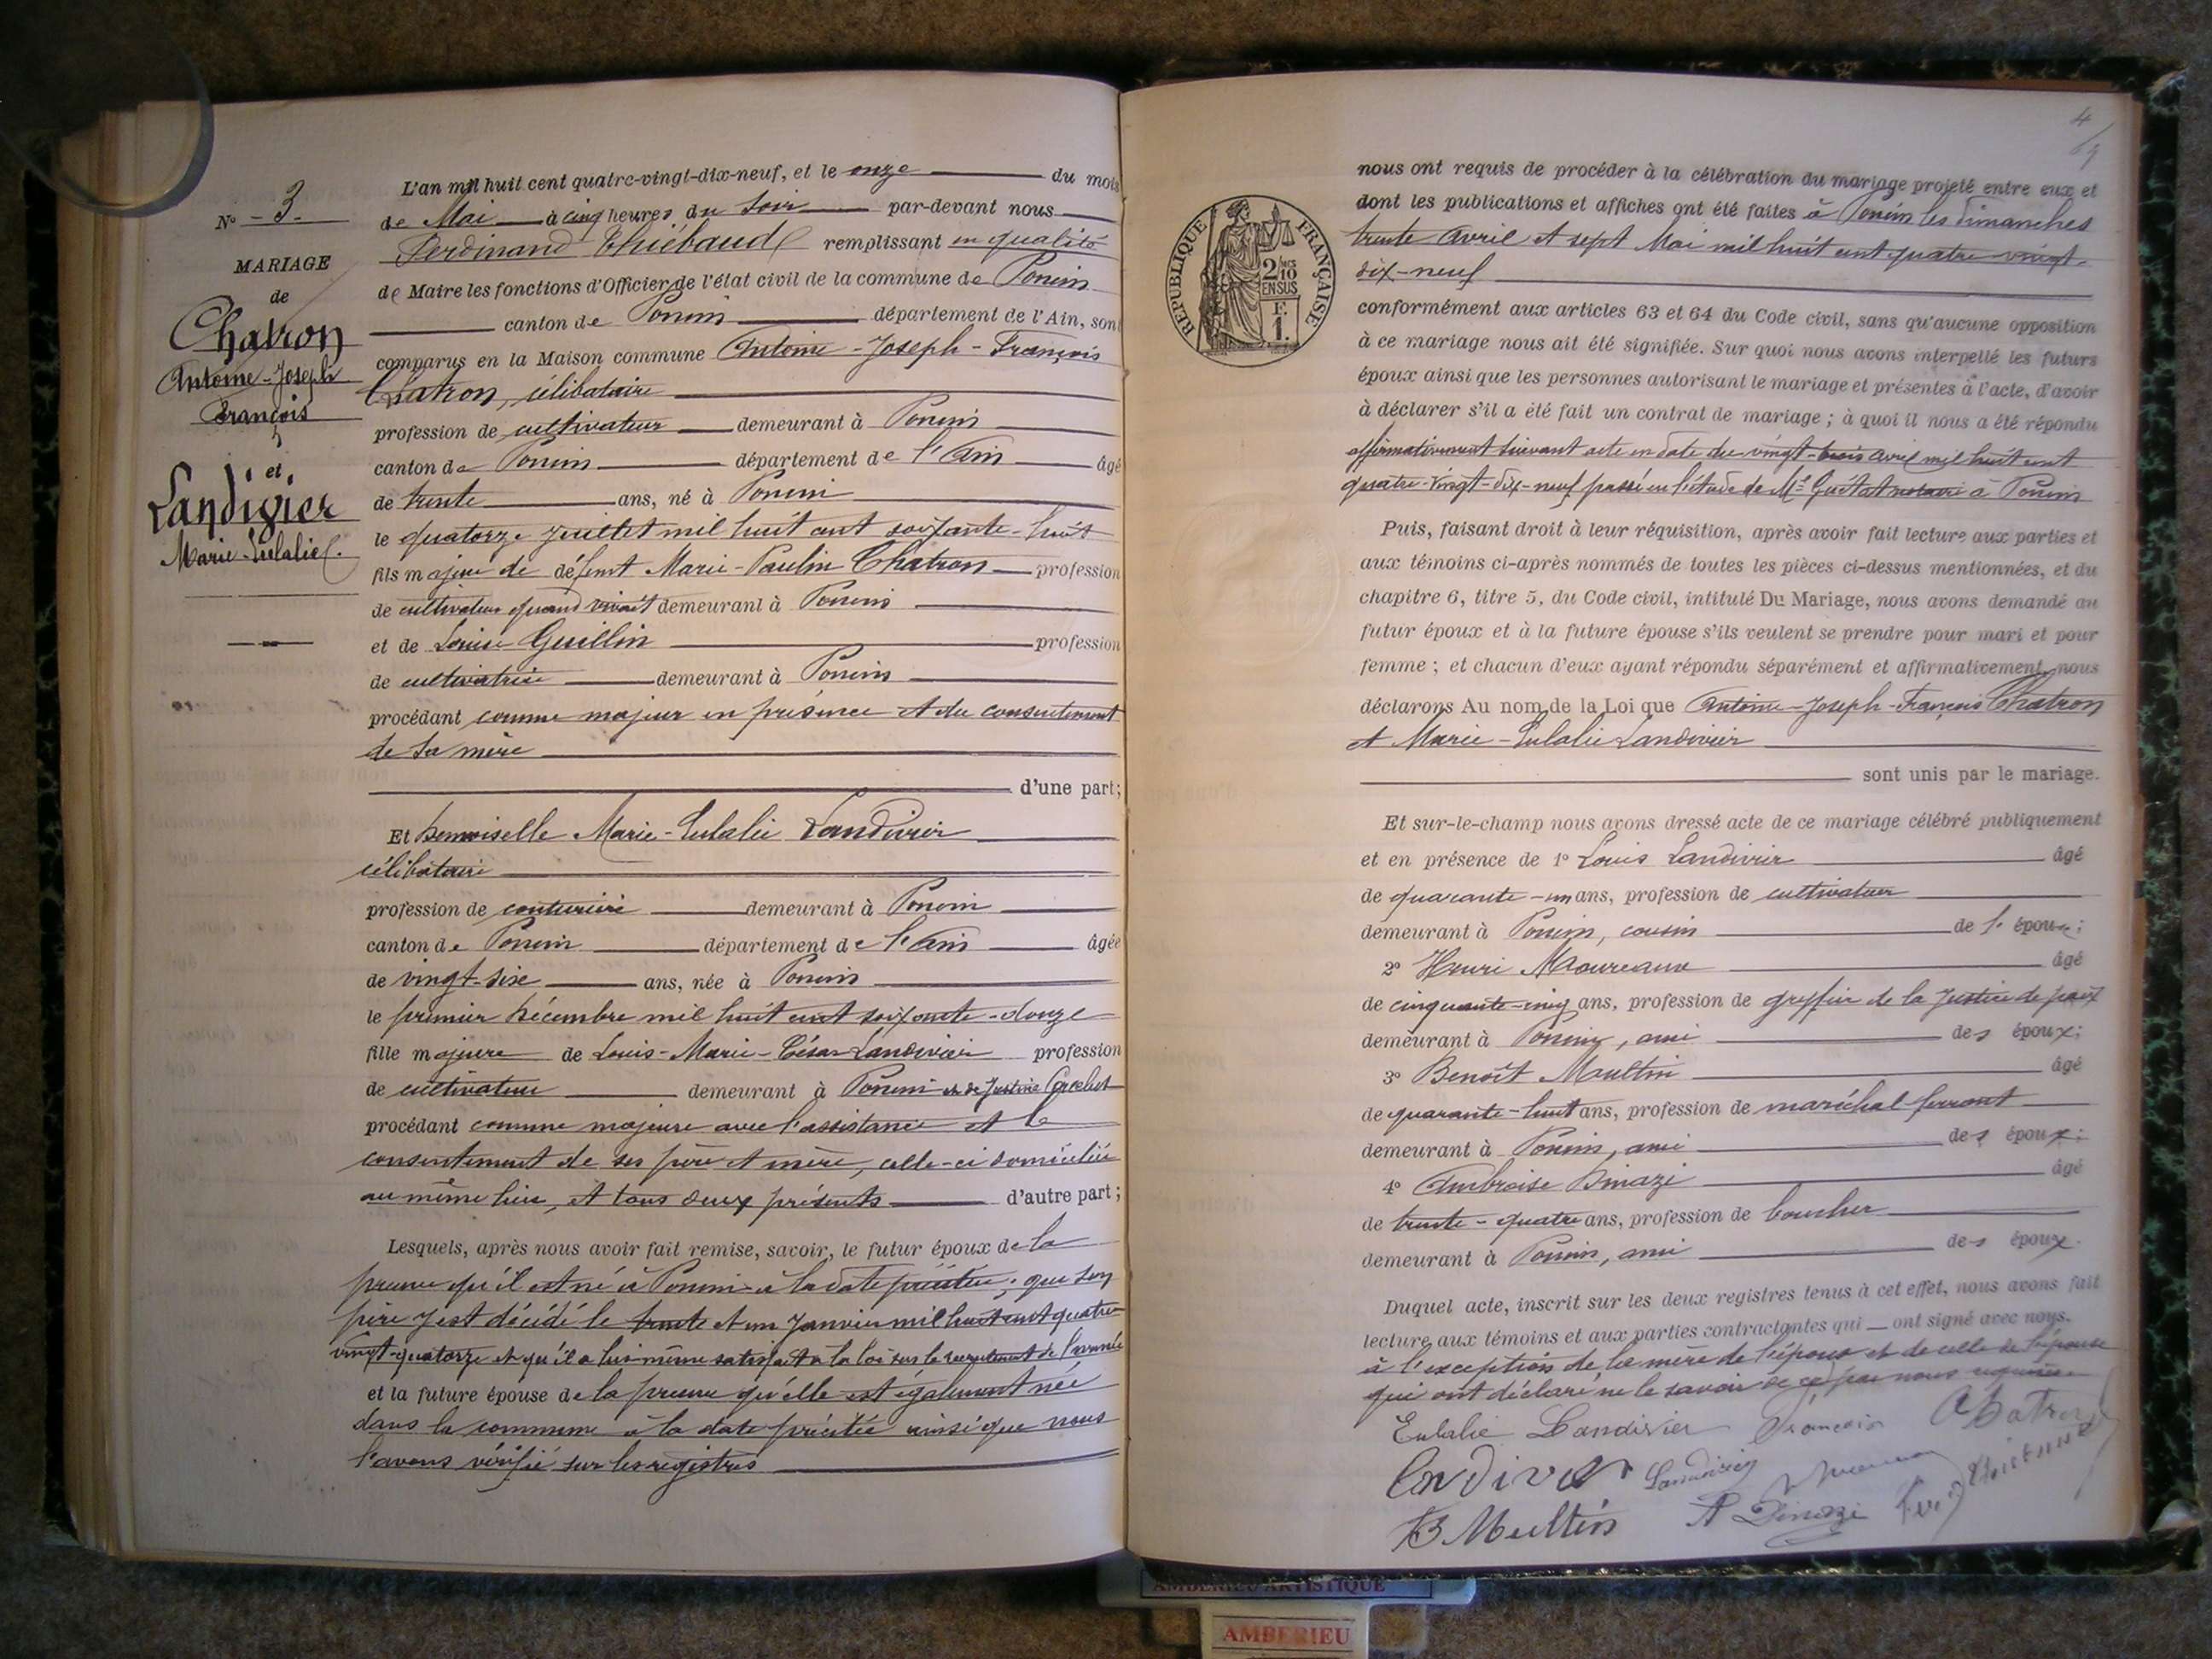 N° - 3. -
MARIAGE
de
Chatron
Antoine-Joseph
François
et
Landivier
Marie-Eulalie
L'an mil huit cent quatre-vingt-dix-neuf, et le onze du mois
de Mai à cinq heures du soir par-devant nous
Ferdinand Thiébaud remplissant en qualité
de Maire les fonctions d'Officier de l'état civil de la commune de Poncin
canton de Poncin département de l'Ain, sont
comparus en la Maison commune Antoine-Joseph-François
Chatron, célibataire
profession de cultivateur demeurant à Poncin
canton de Poncin département de l'Ain âgé
de trente ans, né à Poncin
le quatorze juillet mil huit cent soixante-huit
fils majeur de défunt Marie-Paulin Chatron profession
de cultivateur quand vivait demeurant à Poncin
et de Louise Guillin profession
de cultivatrice demeurant à Poncin
procédant comme majeur en présence et du consentement
de sa mère
d'une part;
Et Demoiselle Marie-Eulalie Landivier
célibataire
profession de couturière demeurant à Poncin
canton de Poncin département de l'Ain âgée
de vingt-six ans, née à Poncin
le premier Décembre mil huit cent soixante-douze
fille majeure de Louis-Marie-César Landivier profession
de cultivateur demeurant à Poncin et de Justine
procédant comme majeure avec l'assistance et le
consentement de ses père et mère, celle-ci domiciliée
au même lieu, et tous deux présents d'autre part;
Lesquels, après nous avoir fait remise, savoir, le futur époux de la
preuve qu'il est né à Poncin à la date précitée; que son
père y est décédé le trente et un Janvier mil huit cent quatre
vingt-quatorze et qu'il a lui-même satisfait à la loi sur le recrutement de l'armée
et la future épouse de la preuve qu'elle est également née
dans la commune à la date précitée ainsi que nous
l'avons vérifié sur les registres
4
RÉPUBLIQUE FRANÇAISE
2/10
EN SUS
F.
1.
nous ont requis de procéder à la célébration du mariage projeté entre eux et
dont les publications et affiches ont été faites à Poncin les dimanches
trente avril et sept Mai mil huit cent quatre vingt-
dix-neuf
conformément aux articles 63 et 64 du Code civil, sans qu'aucune opposition
à ce mariage nous ait été signifiée. Sur quoi nous avons interpellé les futurs
époux ainsi que les personnes autorisant le mariage et présentes à l'acte, d'avoir
à déclarer s'il a été fait un contrat de mariage; à quoi il nous a été répondu
affirmativement suivant acte en date du vingt-trois avril mil huit cent
quatre-vingt-dix-neuf passé en l'étude de Me Guitat notaire à Poncin
Puis, faisant droit à leur réquisition, après avoir fait lecture aux parties et
aux témoins ci-après nommés de toutes les pièces ci-dessus mentionnées, et du
chapitre 6, titre 5, du Code civil, intitulé Du Mariage, nous avons demandé au
futur époux et à la future épouse s'ils veulent se prendre pour mari et pour
femme; et chacun d'eux ayant répondu séparément et affirmativement, nous
déclarons Au nom de la Loi que Antoine-Joseph-François Chatron
et Marie-Eulalie Landivier
sont unis par le mariage.
Et sur-le-champ nous avons dressé acte de ce mariage célébré publiquement
et en présence de 1° Louis Landivier âgé
de quarante-un ans, profession de cultivateur
demeurant à Poncin, cousin de l. épouse;
2° Henri Moureaux âgé
de cinquante-cinq ans, profession de greffier de la Justice de paix
demeurant à Poncin, ami des époux;
3° Benoît Moultin âgé
de quarante-huit ans, profession de maréchal ferrant
demeurant à Poncin, ami des époux;
4° Ambroise Dinazi âgé
de trente-quatre ans, profession de boucher
demeurant à Poncin, ami des époux.
Duquel acte, inscrit sur les deux registres tenus à cet effet, nous avons fait
lecture aux témoins et aux parties contractantes qui ont signé avec nous.
à l'exception de la mère de l'époux et de celle de l'épouse
qui ont déclaré ne le savoir de ce par nous requises
Eulalie Landivier François Chatron
Landivier Landivier
B Multin A Dinazi
AMBERIEU ARTISTIQUE
AMBERIEU